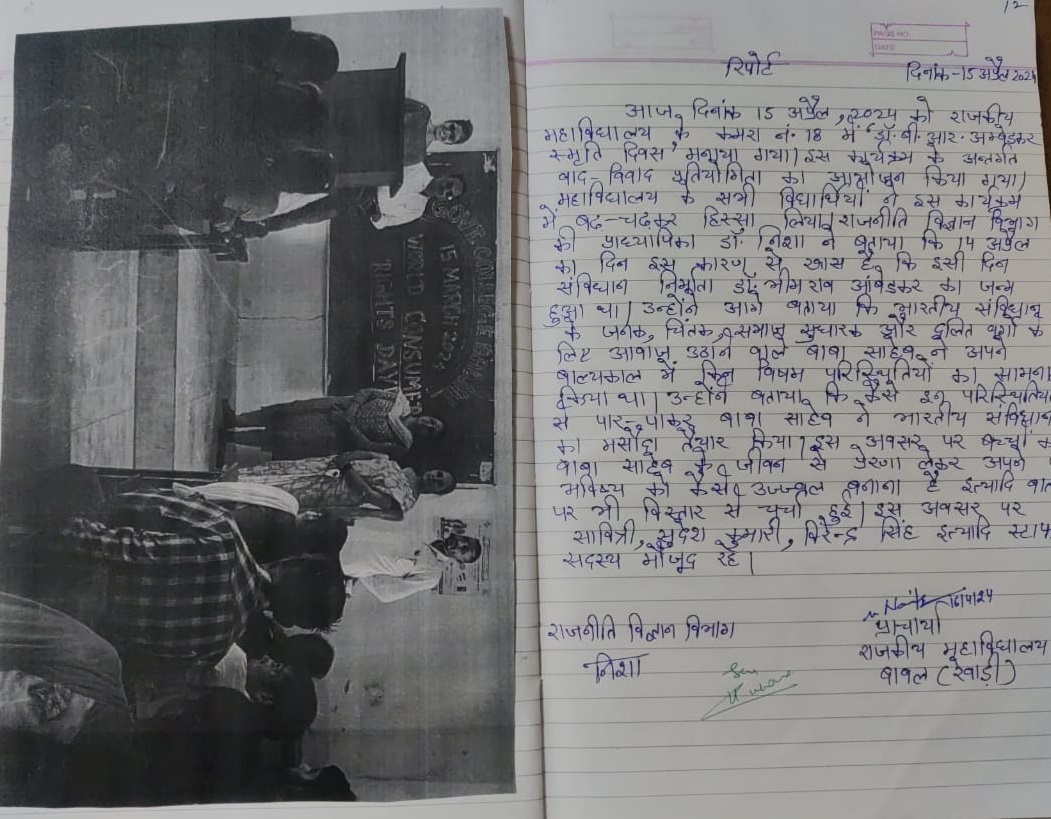 GOVT. COLLEGE BAWAL
15 MARCH 2024
WORLD CONSUMER
RIGHTS DAY
12
PAGE NO.
DATE
रिपोर्ट दिनांक-15 अप्रैल 2024
आज दिनांक 15 अप्रैल, 2024 को राजकीय
महाविद्यालय के कमरा नं. 18 में 'डॉ. बी. आर. अम्बेडकर
स्मृति दिवस' मनाया गया। इस कार्यक्रम के अन्तर्गत
वाद-विवाद प्रतियोगिता का आयोजन किया गया।
महाविद्यालय के सभी विद्यार्थियों ने इस कार्यक्रम
में बढ़-चढ़कर हिस्सा लिया। राजनीति विज्ञान विभाग
की प्राध्यापिका डॉ. निशा ने बताया कि 14 अप्रैल
का दिन इस कारण से खास है कि इसी दिन
संविधान निर्माता डॉ. भीमराव आंबेडकर का जन्म
हुआ था। उन्होंने आगे बताया कि भारतीय संविधान
के जनक, चिंतक, समाज सुधारक और दलित वर्गों के
लिए आवाज उठाने वाले बाबा साहेब ने अपने
बाल्यकाल में किन विषम परिस्थितियों का सामना
किया था। उन्होंने बताया कि कैसे इन परिस्थितियों
से पार पाकर बाबा साहेब ने भारतीय संविधान
का मसौदा तैयार किया। इस अवसर पर बच्चों को
बाबा साहेब के जीवन से प्रेरणा लेकर अपने
भविष्य को कैसे उज्ज्वल बनाना है इत्यादि बात
पर भी विस्तार से चर्चा हुई। इस अवसर पर
सावित्री, सुदेश कुमारी, विरेन्द्र सिंह इत्यादि स्टाफ
सदस्य मौजूद रहे।
16/4/24
राजनीति विज्ञान विभाग
निशा
प्राचार्या
राजकीय महाविद्यालय
बावल (रेवाड़ी)